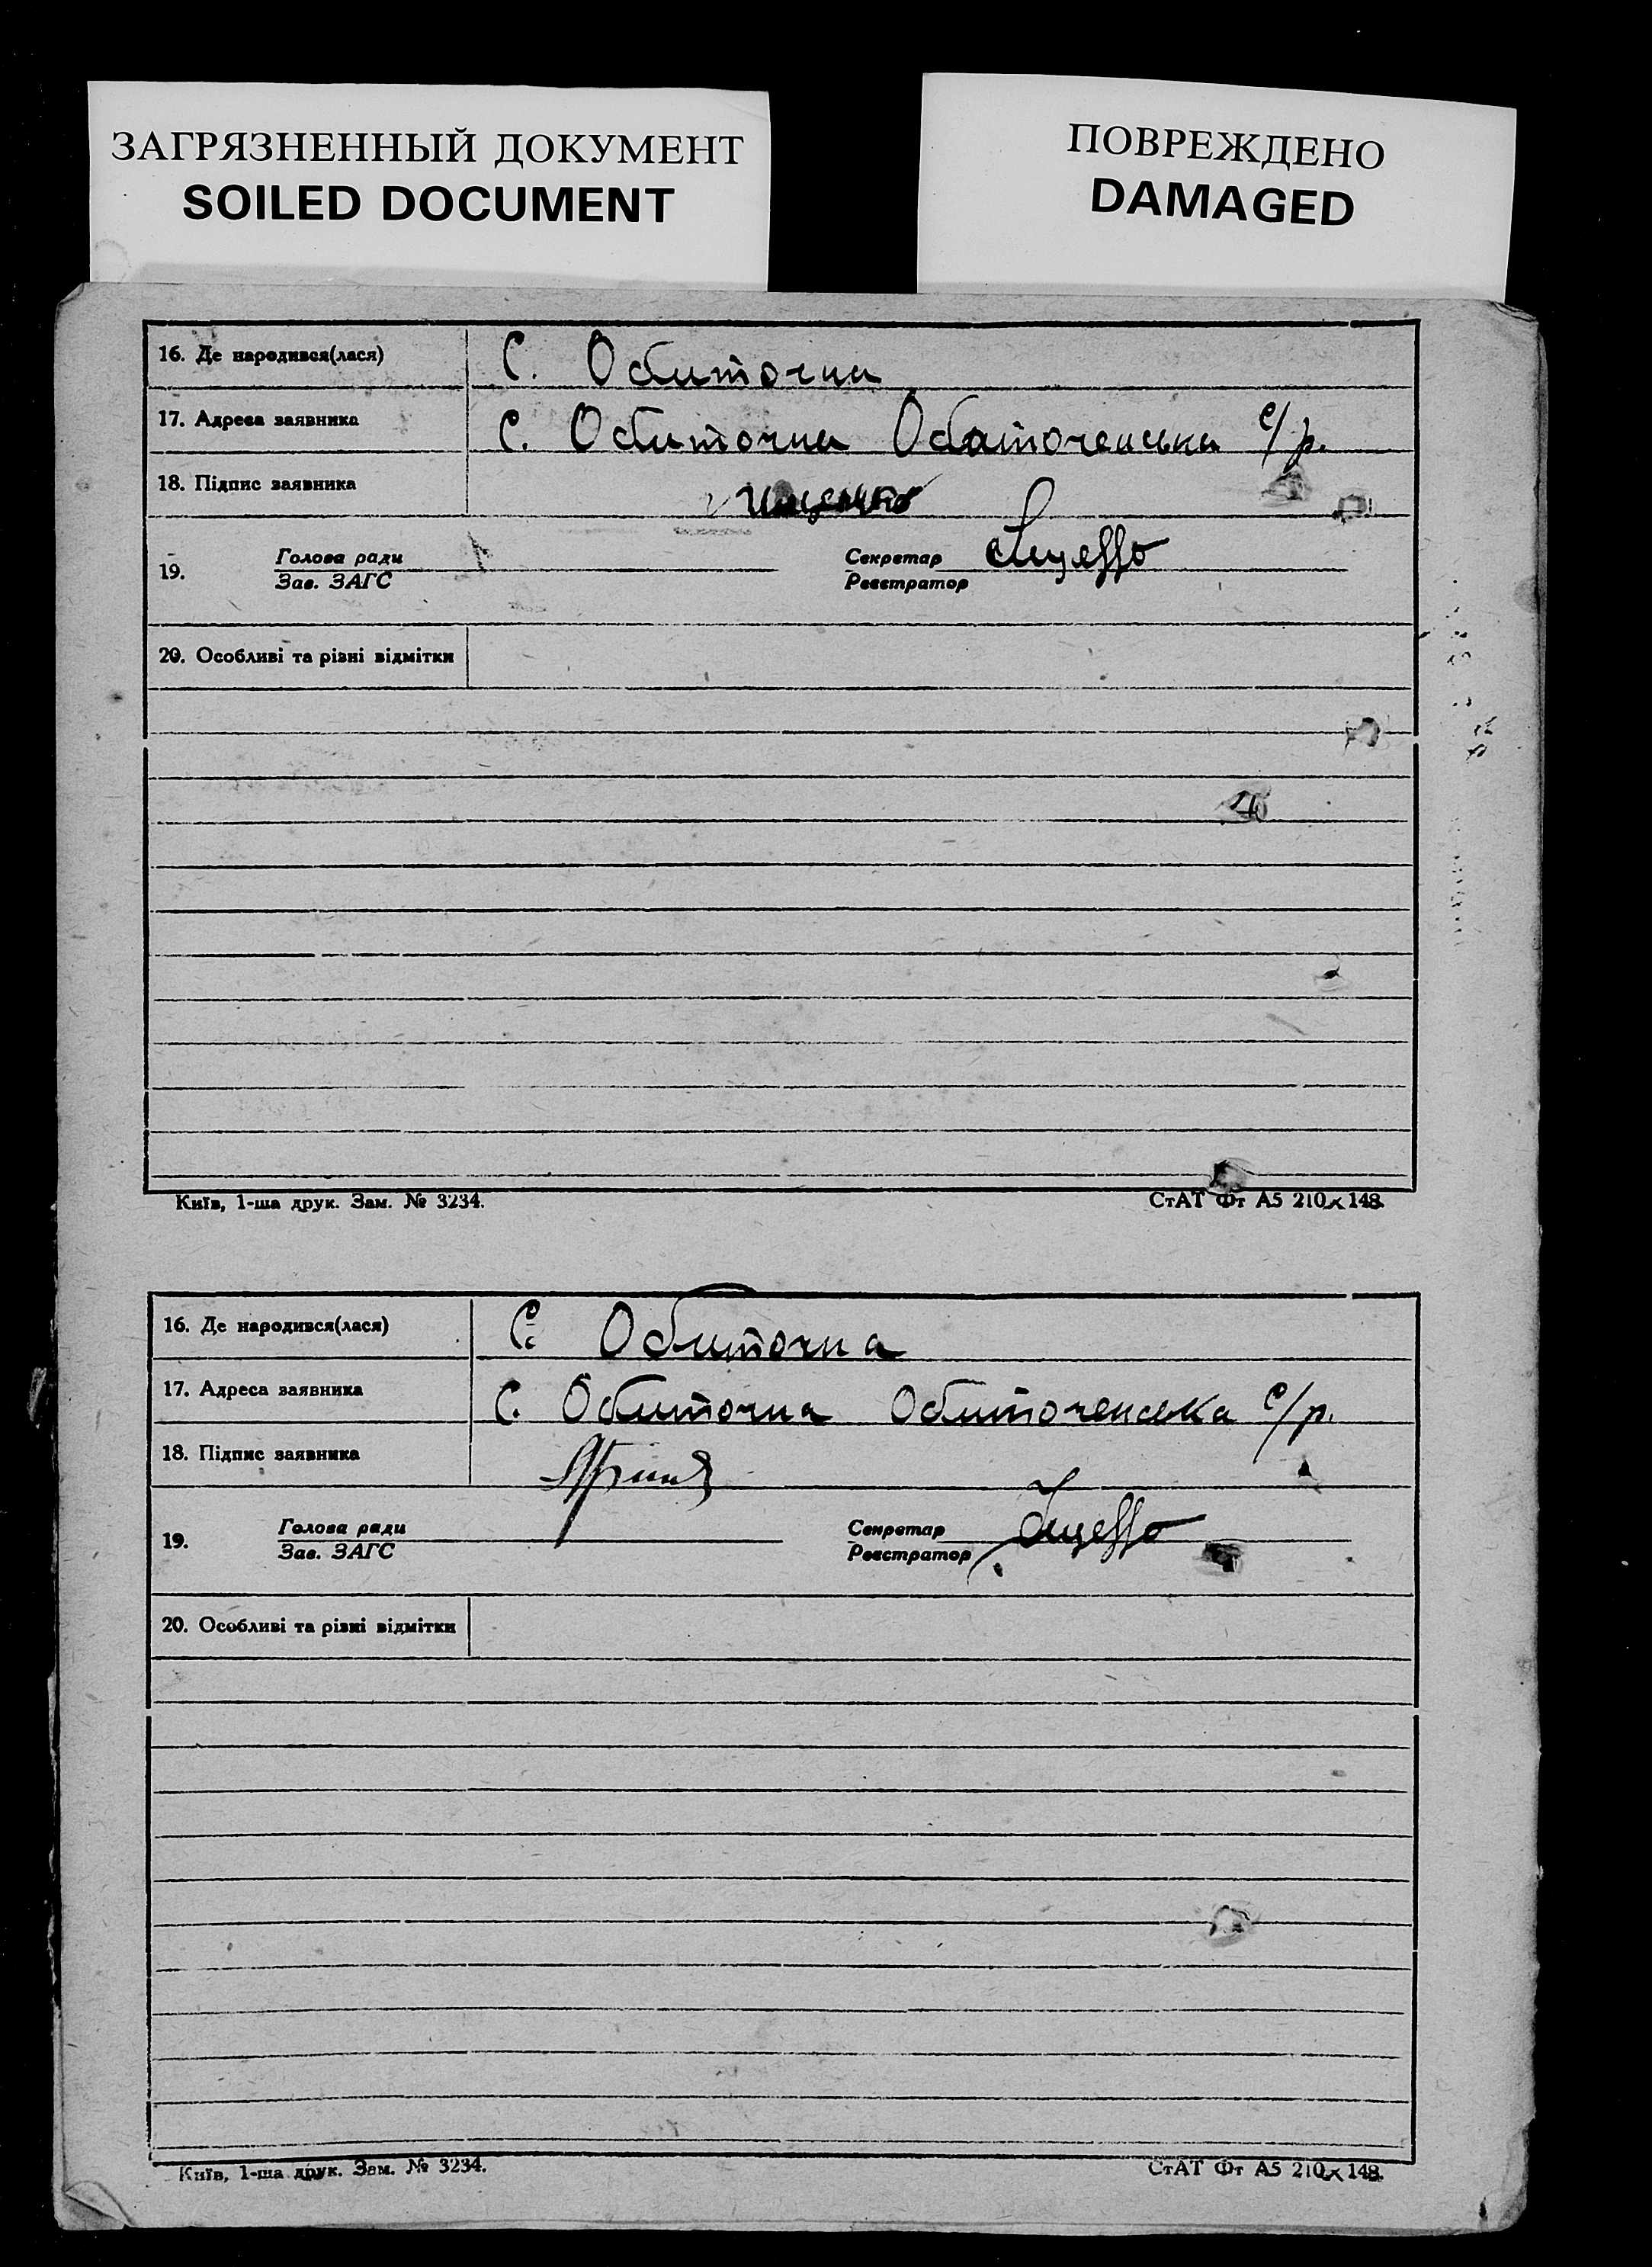 ЗАГРЯЗНЕННЫЙ ДОКУМЕНТ
SOILED DOCUMENT
ПОВРЕЖДЕНО
DAMAGED
16. Де народився(лася) С. Обиточна
17. Адреса заявника С. Обиточна Обиточенська с/р.
18. Підпис заявника Іщенко
19. Голова ради Секретар
Зав. ЗАГС Реєстратор
20. Особливі та різні відмітки
Київ, 1-ша друк. Зам. № 3234. СтАТ Фт А5 210×148.
16. Де народився(лася) С. Обиточна
17. Адреса заявника С. Обиточна Обиточенська с/р.
18. Підпис заявника
19. Голова ради Секретар
Зав. ЗАГС Реєстратор
20. Особливі та різні відмітки
Київ, 1-ша друк. Зам. № 3234. СтАТ Фт А5 210×148.